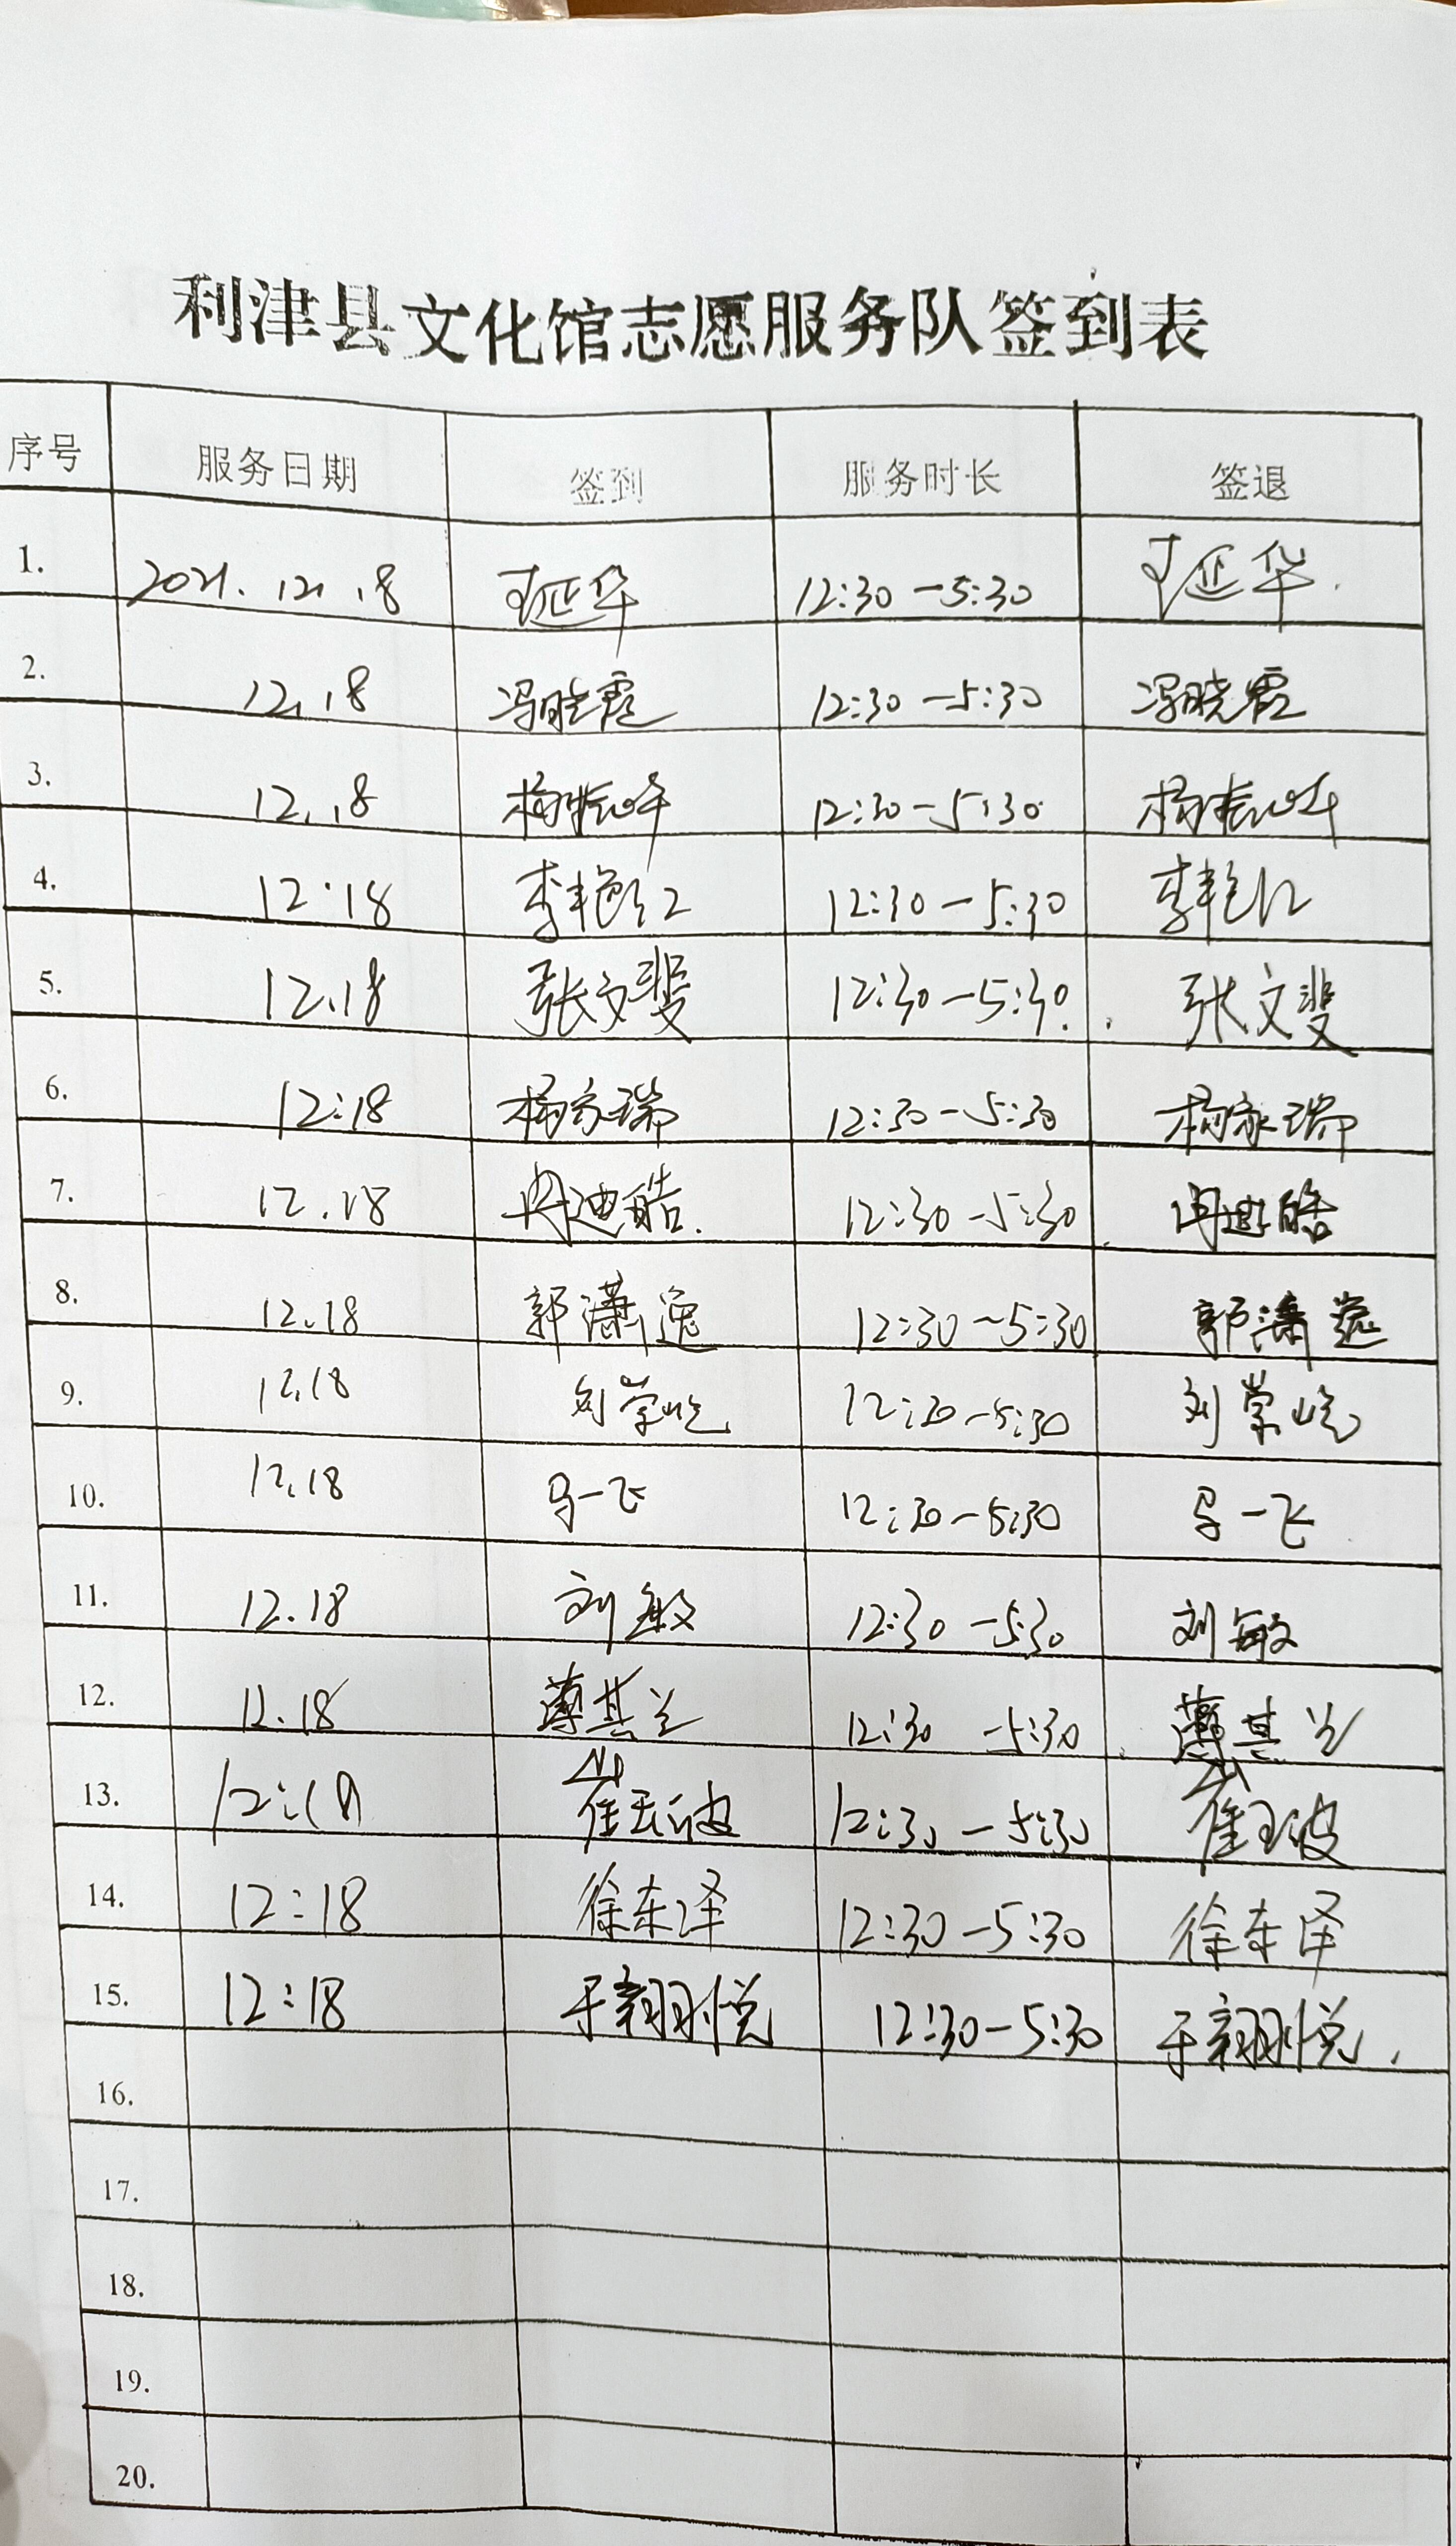 利津县文化馆志愿服务队签到表
序号 服务日期 签到 服务时长 签退
1. 2021.12.18 延华 12:30-5:30 延华
2. 12.18 冯晓霞 12:30-5:30 冯晓霞
3. 12.18 杨 12:30-5:30 杨
4. 12.18 李艳红 12:30-5:30 李艳红
5. 12.18 张文斐 12:30-5:30 张文斐
6. 12:18 杨家瑞 12:30-5:30 杨家瑞
7. 12.18 冉迪皓 12:30-5:30 冉迪皓
8. 12.18 郭潇逸 12:30~5:30 郭潇逸
9. 12.18 刘学屹 12:30-5:30 刘学屹
10. 12.18 马一飞 12:30-5:30 马一飞
11. 12.18 刘敏 12:30-5:30 刘敏
12. 12.18 薄其兰 12:30 -5:30 薄其兰
13. 12:18 崔玉波 12:30-5:30 崔玉波
14. 12:18 徐东泽 12:30-5:30 徐东泽
15. 12:18 于翙悦 12:30-5:30 于翙悦
16.
17.
18.
19.
20.